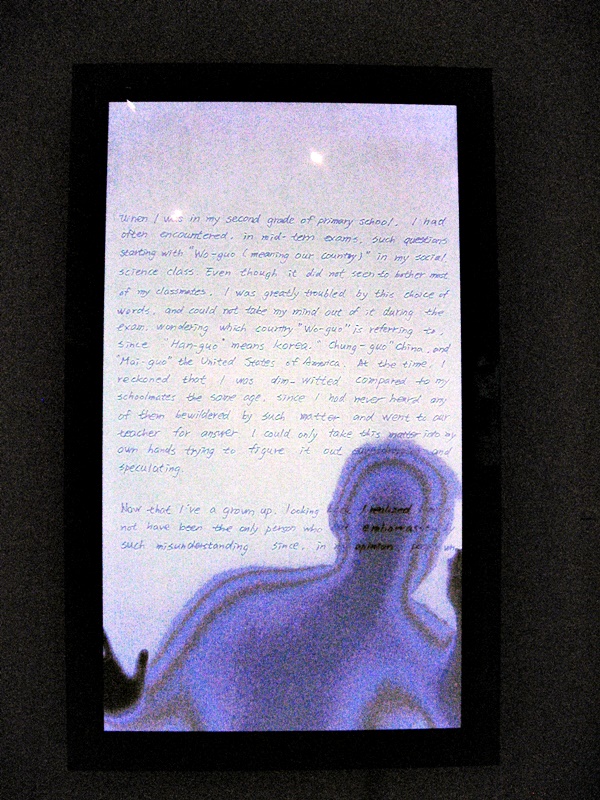 When I was in my second grade of primary school, I had
often encountered, in mid-term exams, such questions
starting with "Wo-guo (meaning our country)" in my social
science class. Even though it did not seen to bother most
of my classmates, I was greatly troubled by this choice of
words, and could not take my mind out of it during the
exam, wandering which country "Wo-guo" is referring to,
since "Han-guo" means korea, "Chung-guo" China, and
"Mai-guo" the United States of America. At the time, I
reckoned that I was dim-witted compared to my
schoolmates the same age, since I had never heard any
of them bewildered by such matter and went to our
teacher for answer. I could only take this matter into my
own hands trying to figure it out and
speculating.
Now that I've a grown up, looking I realized
not have been the only person who embarrassed by
such misunderstanding since, in opinion